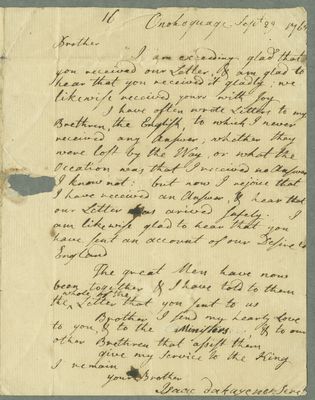 16 Onohoquage Sept. 29 1765
Brother
I am exceeding glad that
you received our Letter, & am glad to
hear that you received it gladly; we
likewise received yours with Joy
I have often wrote Letters to my
Brethren, the English, to which I never
received any Answer, whether they
were lost by the Way, or what the
Occation was that I received no Answer
I know not: but now I rejoice that
I have received an Answer, & hear that
our Letter was arrived safely. I
am likewise glad to hear that you
have sent an account of our Desire to
England
The great Men have now
been together & I have told to them
whole of the
the Letter that you sent to us
Brother, I send my hearty Love
to you, & to the Ministers & to our
other Brethren that assist them
give my Service to the King
I remain
your Brother
Isaac dakayenensere